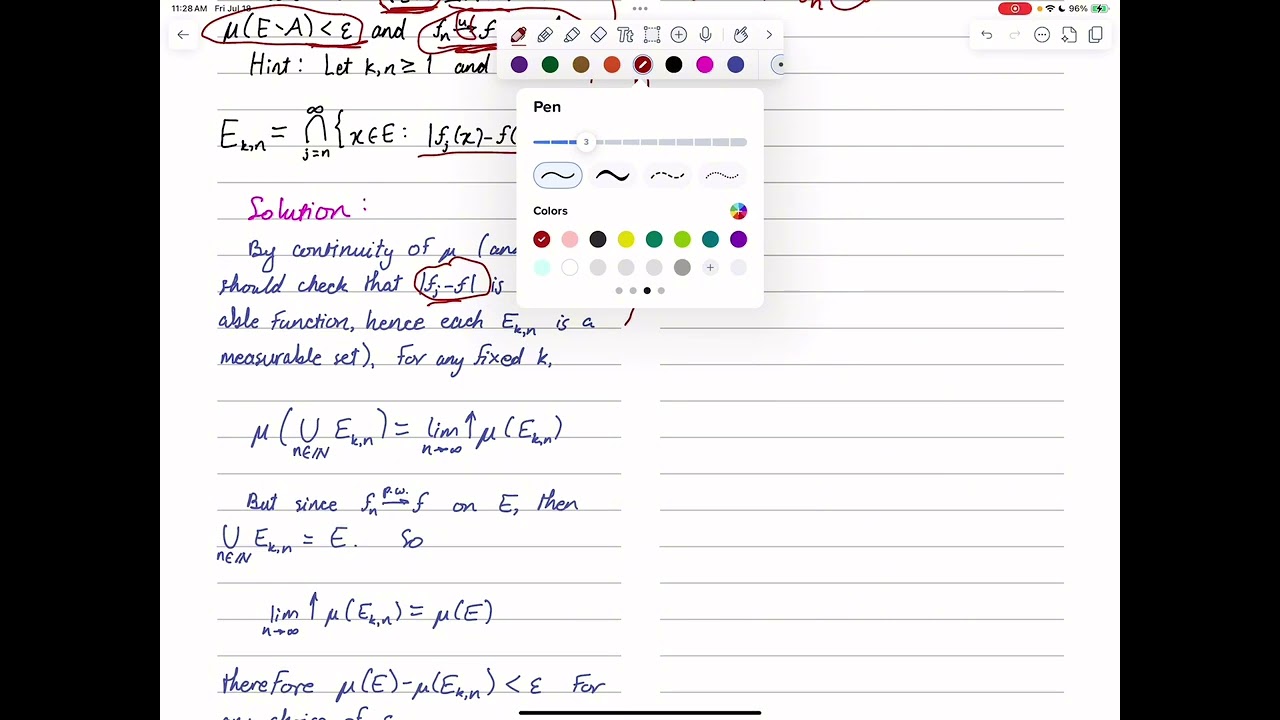 11:28 AM Fri Jul 18
96%
μ(E~A) < ε and fₙ →ᵘ f
Hint: Let k,n ≥ 1 and
E_{k,n} = ⋂_{j=n}^{∞} {x∈E: |f_j(x)-f(
Pen
3
Colors
Solution:
By continuity of μ (an
should check that |f_j-f| is
able function, hence each E_{k,n} is a
measurable set). For any fixed k,
μ(⋃_{n∈ℕ} E_{k,n}) = lim_{n→∞}↑ μ(E_{k,n})
But since fₙ →^{p.w.} f on E, then
⋃_{n∈ℕ} E_{k,n} = E. So
lim_{n→∞}↑ μ(E_{k,n}) = μ(E)
therefore μ(E)-μ(E_{k,n}) < ε For